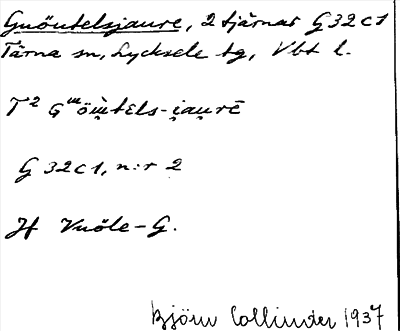 Gnöutelsjaure, 2 tjärnar G32c1
Tärna sn, Lycksele tg, Vbt l.
T² Gᵐöẁtɛls-i̯au̯rē
G 32c1, n:r 2
Jf Vuöle-G.
Björn Collinder 1937